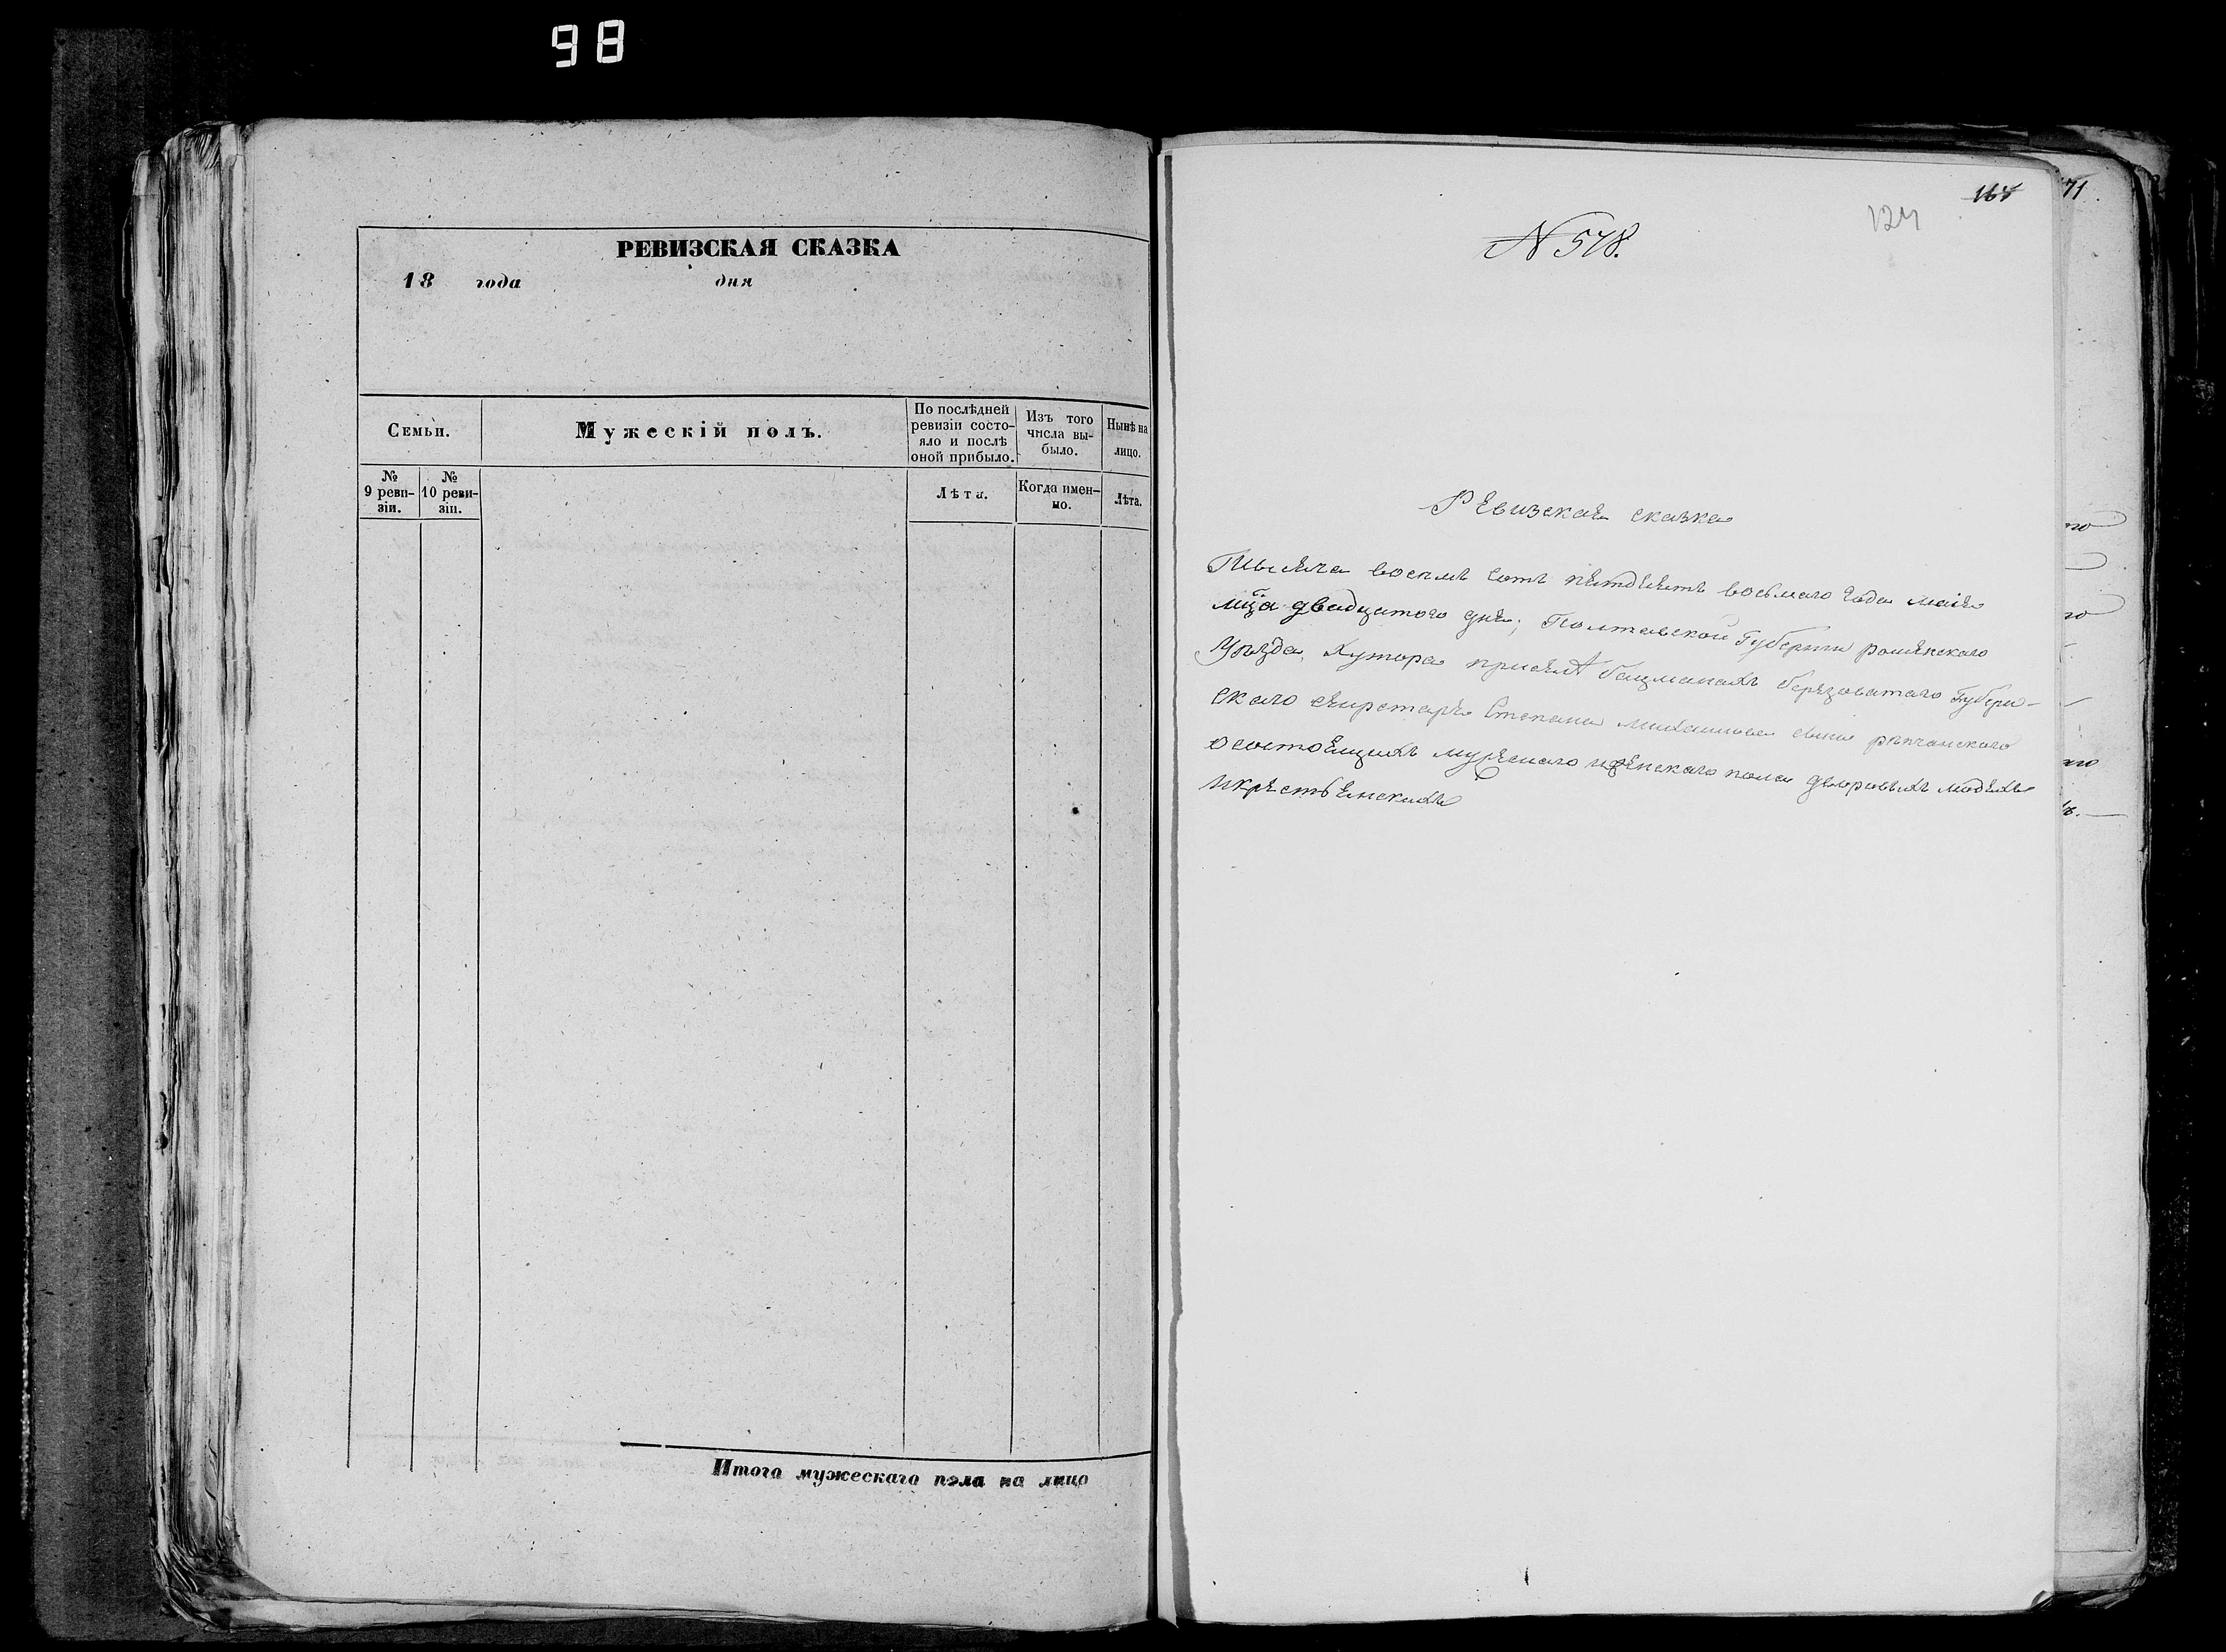 98
РЕВИЗСКАЯ СКАЗКА
18 года дня
Семьи.
Мужескій полъ.
По послѣдней ревизіи состо-
яло и послѣ оной прибыло.
Изъ того числа вы-
было.
Нынѣ на лицо.
№ 9 реви-
зіи.
№ 10 реви-
зіи.
Лѣта.
Когда имен-
но.
Лѣта.
Итого мужескаго пола на лицо
164
71.
124
№ 548.
Ревизская сказка
Тысяча восемь сотъ пятдесятъ восьмаго года маія
мца двадцатого дня; Полтавской Губерніи роменского
Уѣзда, Хутора при селѣ бацманахъ березоватаго Губерн-
ского секретаря Степана
о состоящихъ мужескаго и женскаго пола дворовыхъ людехъ
и крестьянскихъ